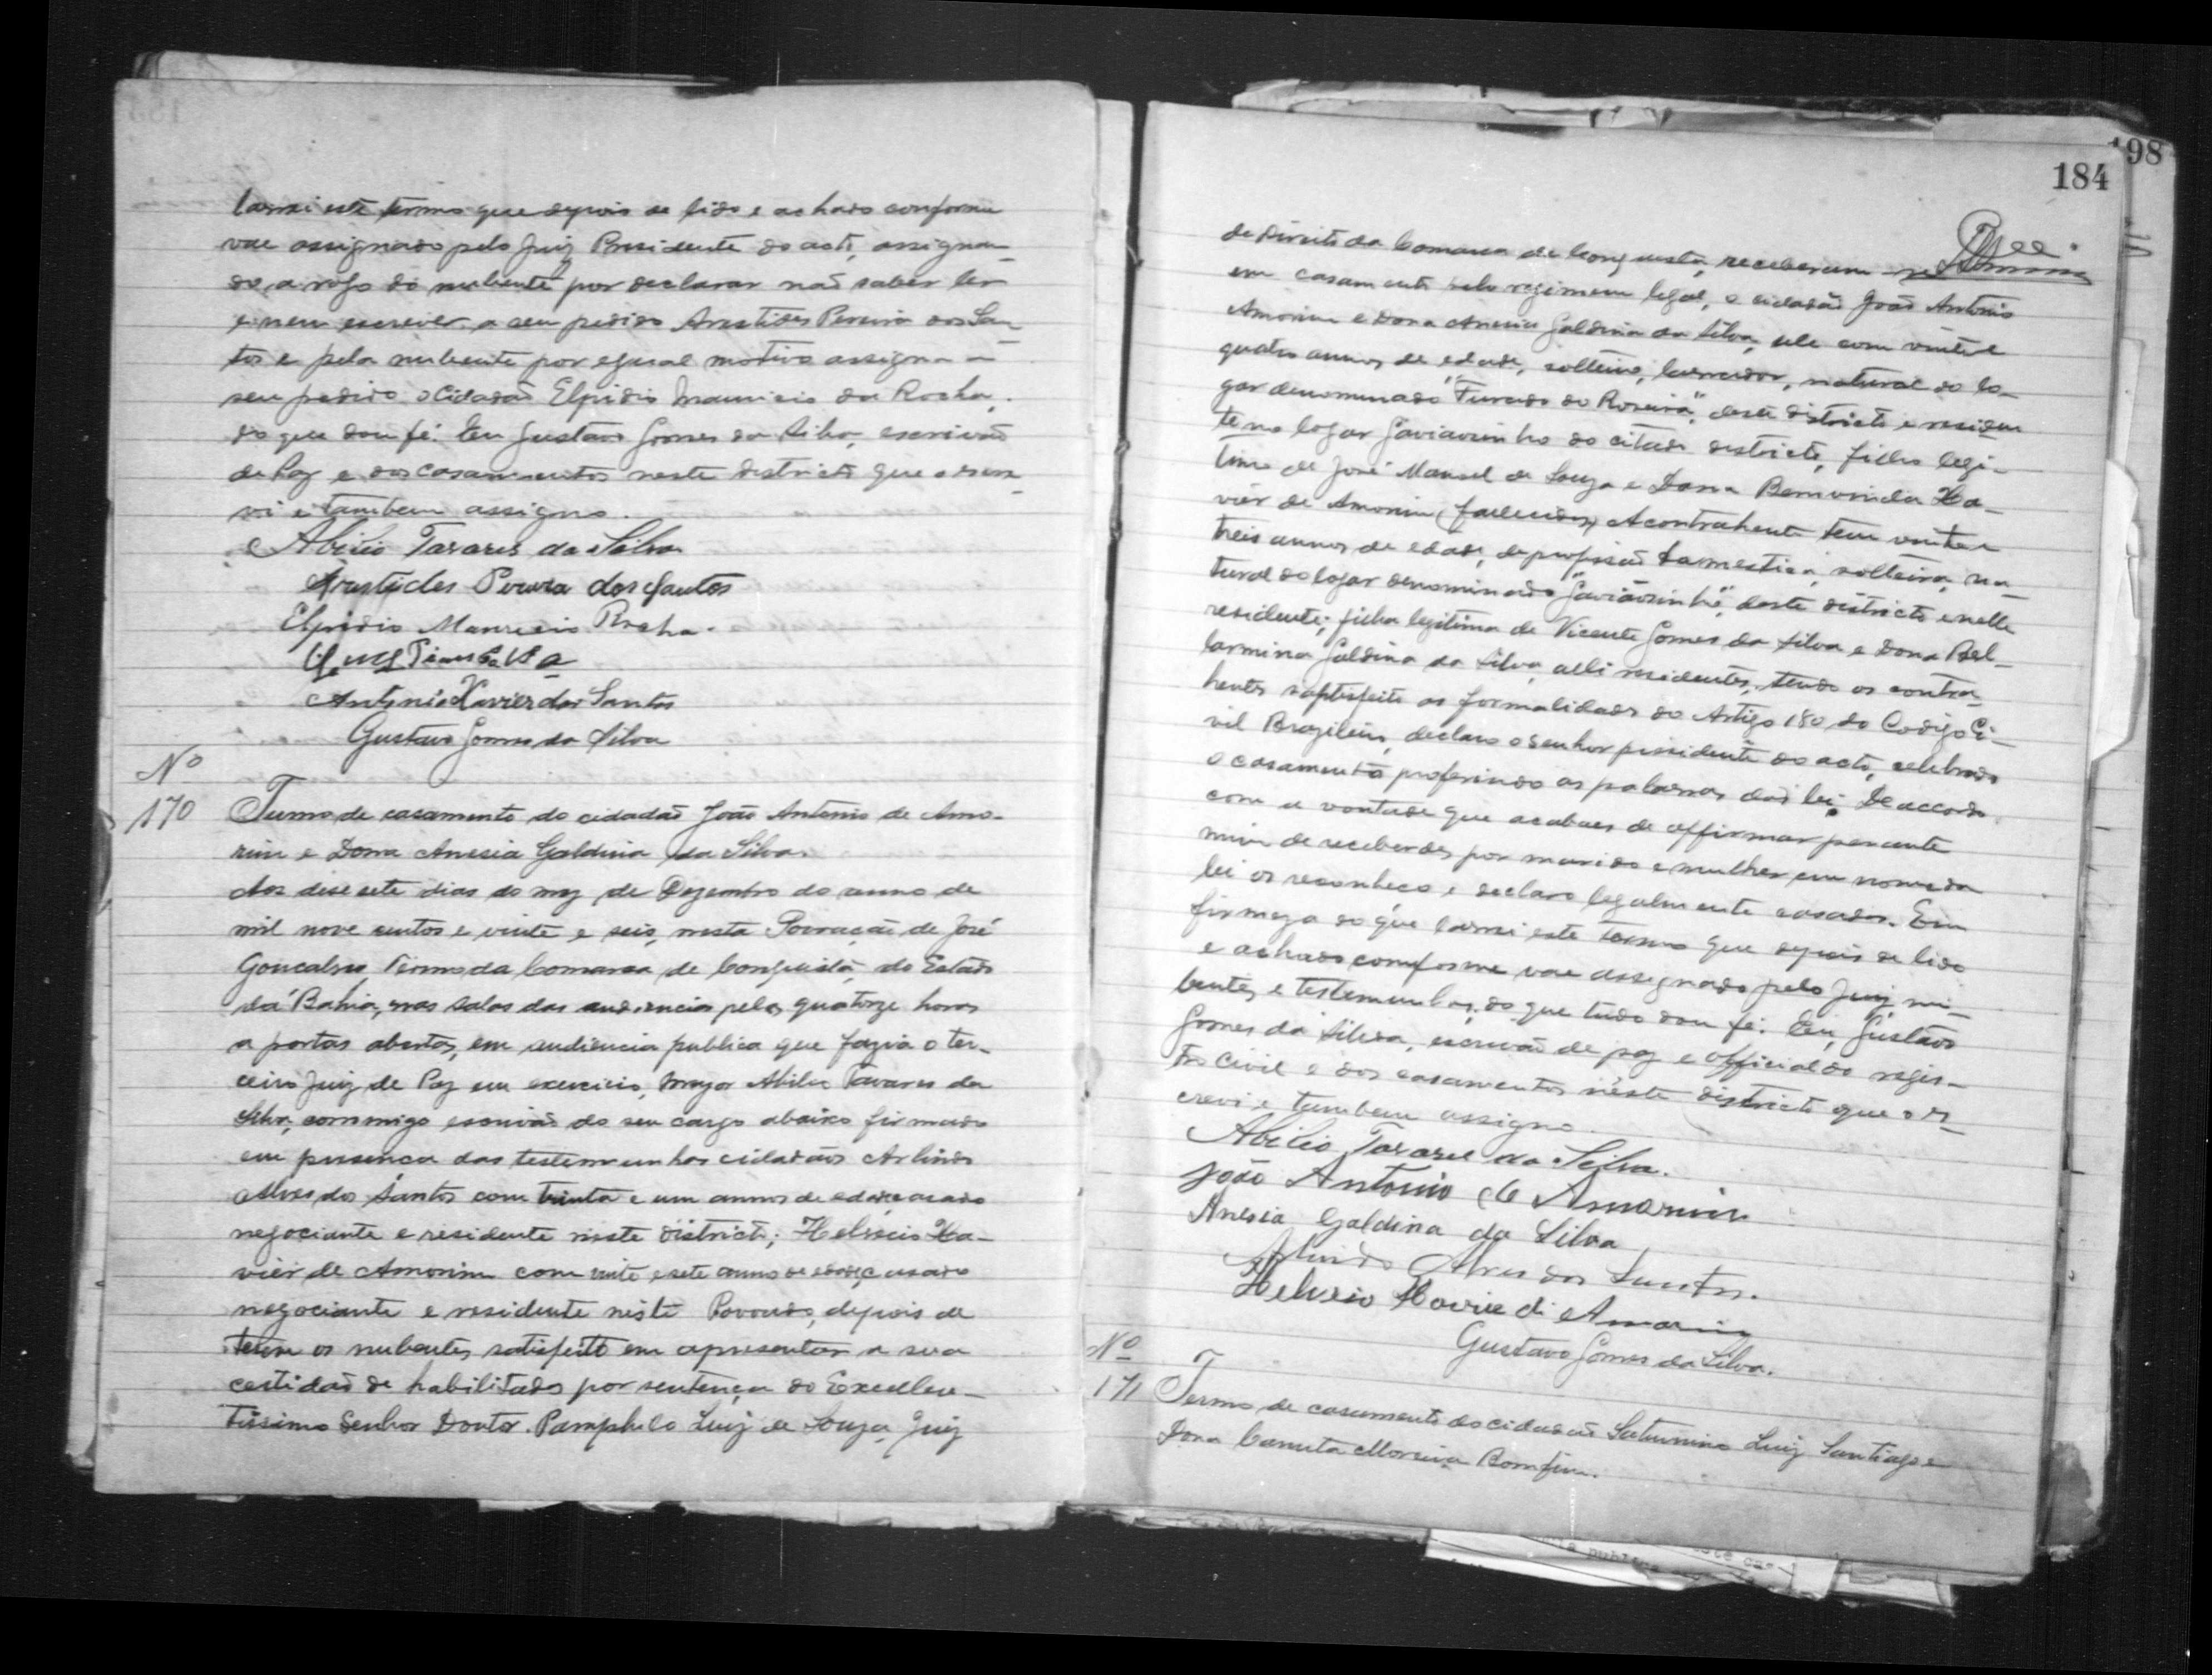 lavrei este termo que depois de lido e achado conforme
vae assignado pelo Juiz Presidente do acto, assignan-
do a rôgo do nubente por declarar não saber ler
e nem escrever a seu pedido Arestides Pereira dos San-
tos e pela nubente por egual motivo assigna a
seu pedido o Cidadão Elpidio Mauricio da Rocha,
do que dou fé. Eu Gustavo Gomes da Silva, escrivão
de Paz e dos casamentos neste districto que o escre-
vi e tambem assigno.
Abilio Tavares da Silva
Arustydes Pereira dos Santos
Elpidio Mauricio Rocha.
Antonio Xavier dos Santos
Gustavo Gomes da Silva
No
170 Termo de casamento do cidadão João Antonio de Amo-
rim e Dona Anesia Galdina da Silva.
Aos desesete dias do mez de Dezembro do anno de
mil nove centos e vinte e seis, nesta Povoação de José
Goncalves, Termo da Comarca de Conquista, do Estado
da Bahia, nas salas das audiencias pelas quatorze horas
a portas abertas, em audiencia publica que fazia o ter-
ceiro Juiz de Paz em exercicio, Major Abilio Tavares da
Silva, commigo escrivão do seu cargo abaixo firmado
em presença das testemunhas cidadãos Arlindo
Alves dos Santos com trinta e um annos de edade, casado
negociante e residente neste districto; Helvecio Xa-
vier de Amorim com vinte e sete annos de edade, casado
negociante e residente neste Povoado, depois de
terem os nubentes satisfeito em apresentar a sua
certidão de habilitados por sentença do Excellen-
tissimo Senhor Doutor Pamphilo Luiz de Souza, Juiz
198
184
de Direito da Comarca de Conquista, receberam-se
em casamento pelo regimem legal, o cidadão João Antonio
Amorim e Dona Anesia Galdina da Silva, elle com vinte e
quatro annos de edade, solteiro, lavrador, natural do lo-
gar denominado "Furado do Roseira", deste districto e residen
te no logar Gaviaosinho do citado districto, filho legi-
timo de José Manoel de Souza e Dona Bemvinda Xa-
vier de Amorim (fallecidos) A contrahente tem vinte e
treis annos de edade, de profissão domestica, solteira, na-
tural do logar denominado "Gaviãosinho", deste districto e nelle
residente; filha legitima de Vicente Gomes da Silva e Dona Bel-
larmina Galdina da Silva, alli residentes, tendo os contra-
hentes satisfeito as formalidades do Artigo 180 do Codigo Ci-
vil Brazileiro, declaro o senhor presidente do acto, celebrado
o casamento proferindo as palavras da lei: De accordo
com a vontade que acabaes de affirmar perante
mim de receberdes por marido e mulher em nome da
lei os reconheço e declaro legalmente casados. Em
firmeza do que lavrei este termo que depois de lido
e achado comforme vae assignado pelo Juiz, nu-
bentes e testemunhas, do que tudo dou fé. Eu, Gustavo
Gomes da Silva, escrivão de paz e official do regis-
tro civil e dos casamentos neste districto que o es-
crevi e tambem assigno.
Abilio Tavares da Silva.
João Antonio de Amorim
Anesia Galdina da Silva
Arlindo Alves dos Santos.
Helvecio Xavier di Amorim
Gustavo Gomes da Silva.
No
171 Termo de casamento do cidadão Saturnino Luiz Santiago e
Dona Canuta Moreira Bomfim.